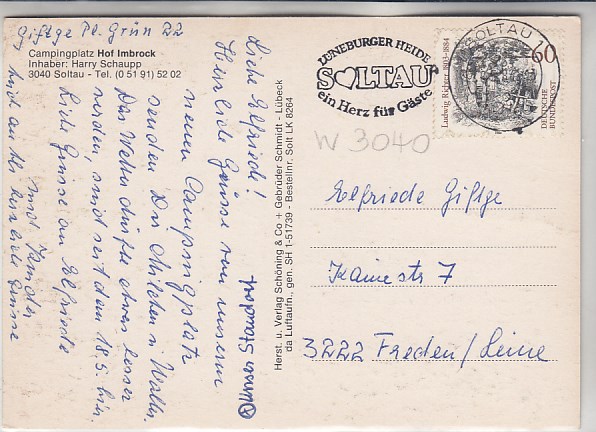 Giftge Pl. Grün 22
Campingplatz Hof Imbrock
Inhaber: Harry Schaupp
3040 Soltau - Tel. (0 51 91) 52 02
Liebe Elfriede!
Herzliche Grüsse von unserem
neuen Campingplatz
senden Dir
Das Wetter dürfte etwas besser
werden, sind seit dem 18.5. hier.
Liebe Grüsse an Elfriede
und
unser Standort
Herst. u. Verlag Schöning & Co + Gebrüder Schmidt - Lübeck
da Luftaufn., gen. SH 1-51739 - Bestellnr. Solt LK 8264
LÜNEBURGER HEIDE
SOLTAU
ein Herz für Gäste
SOLTAU
60
Ludwig Richter 1803-1884
DEUTSCHE
BUNDESPOST
W 3040
Elfriede Giftge
Kainestr 7
3222 Freden/Leine